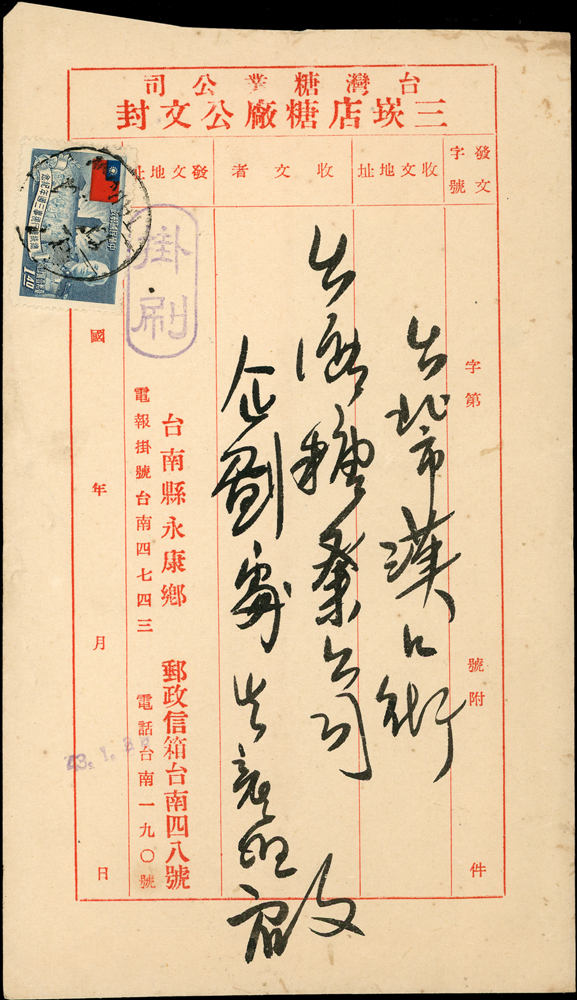 台灣糖業公司
三崁店糖廠公文封
發文字號
收文地址
收文者
發文地址
字第
號附
件
台北市漢口街
台灣糖業公司
企劃處
啟
掛刷
1.40
台南縣永康鄉 郵政信箱台南四八號
電報掛號台南四七四三 電話台南一九〇號
國
年
月
日